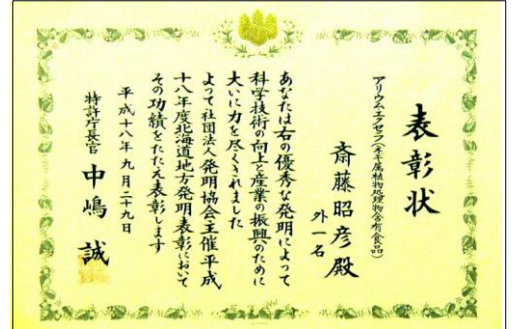 表彰状
アリウムエクセラ(ネギ属植物処理物含有食品)
斎藤昭彦殿
外一名
あなたは右の優秀な発明によって
科学技術の向上と産業の振興のために
大いに力を尽くされました
よって社団法人発明協会主催平成
十八年度北海道地方発明表彰において
その功績をたたえ表彰します
平成十八年九月二十九日
特許庁長官 中嶋誠